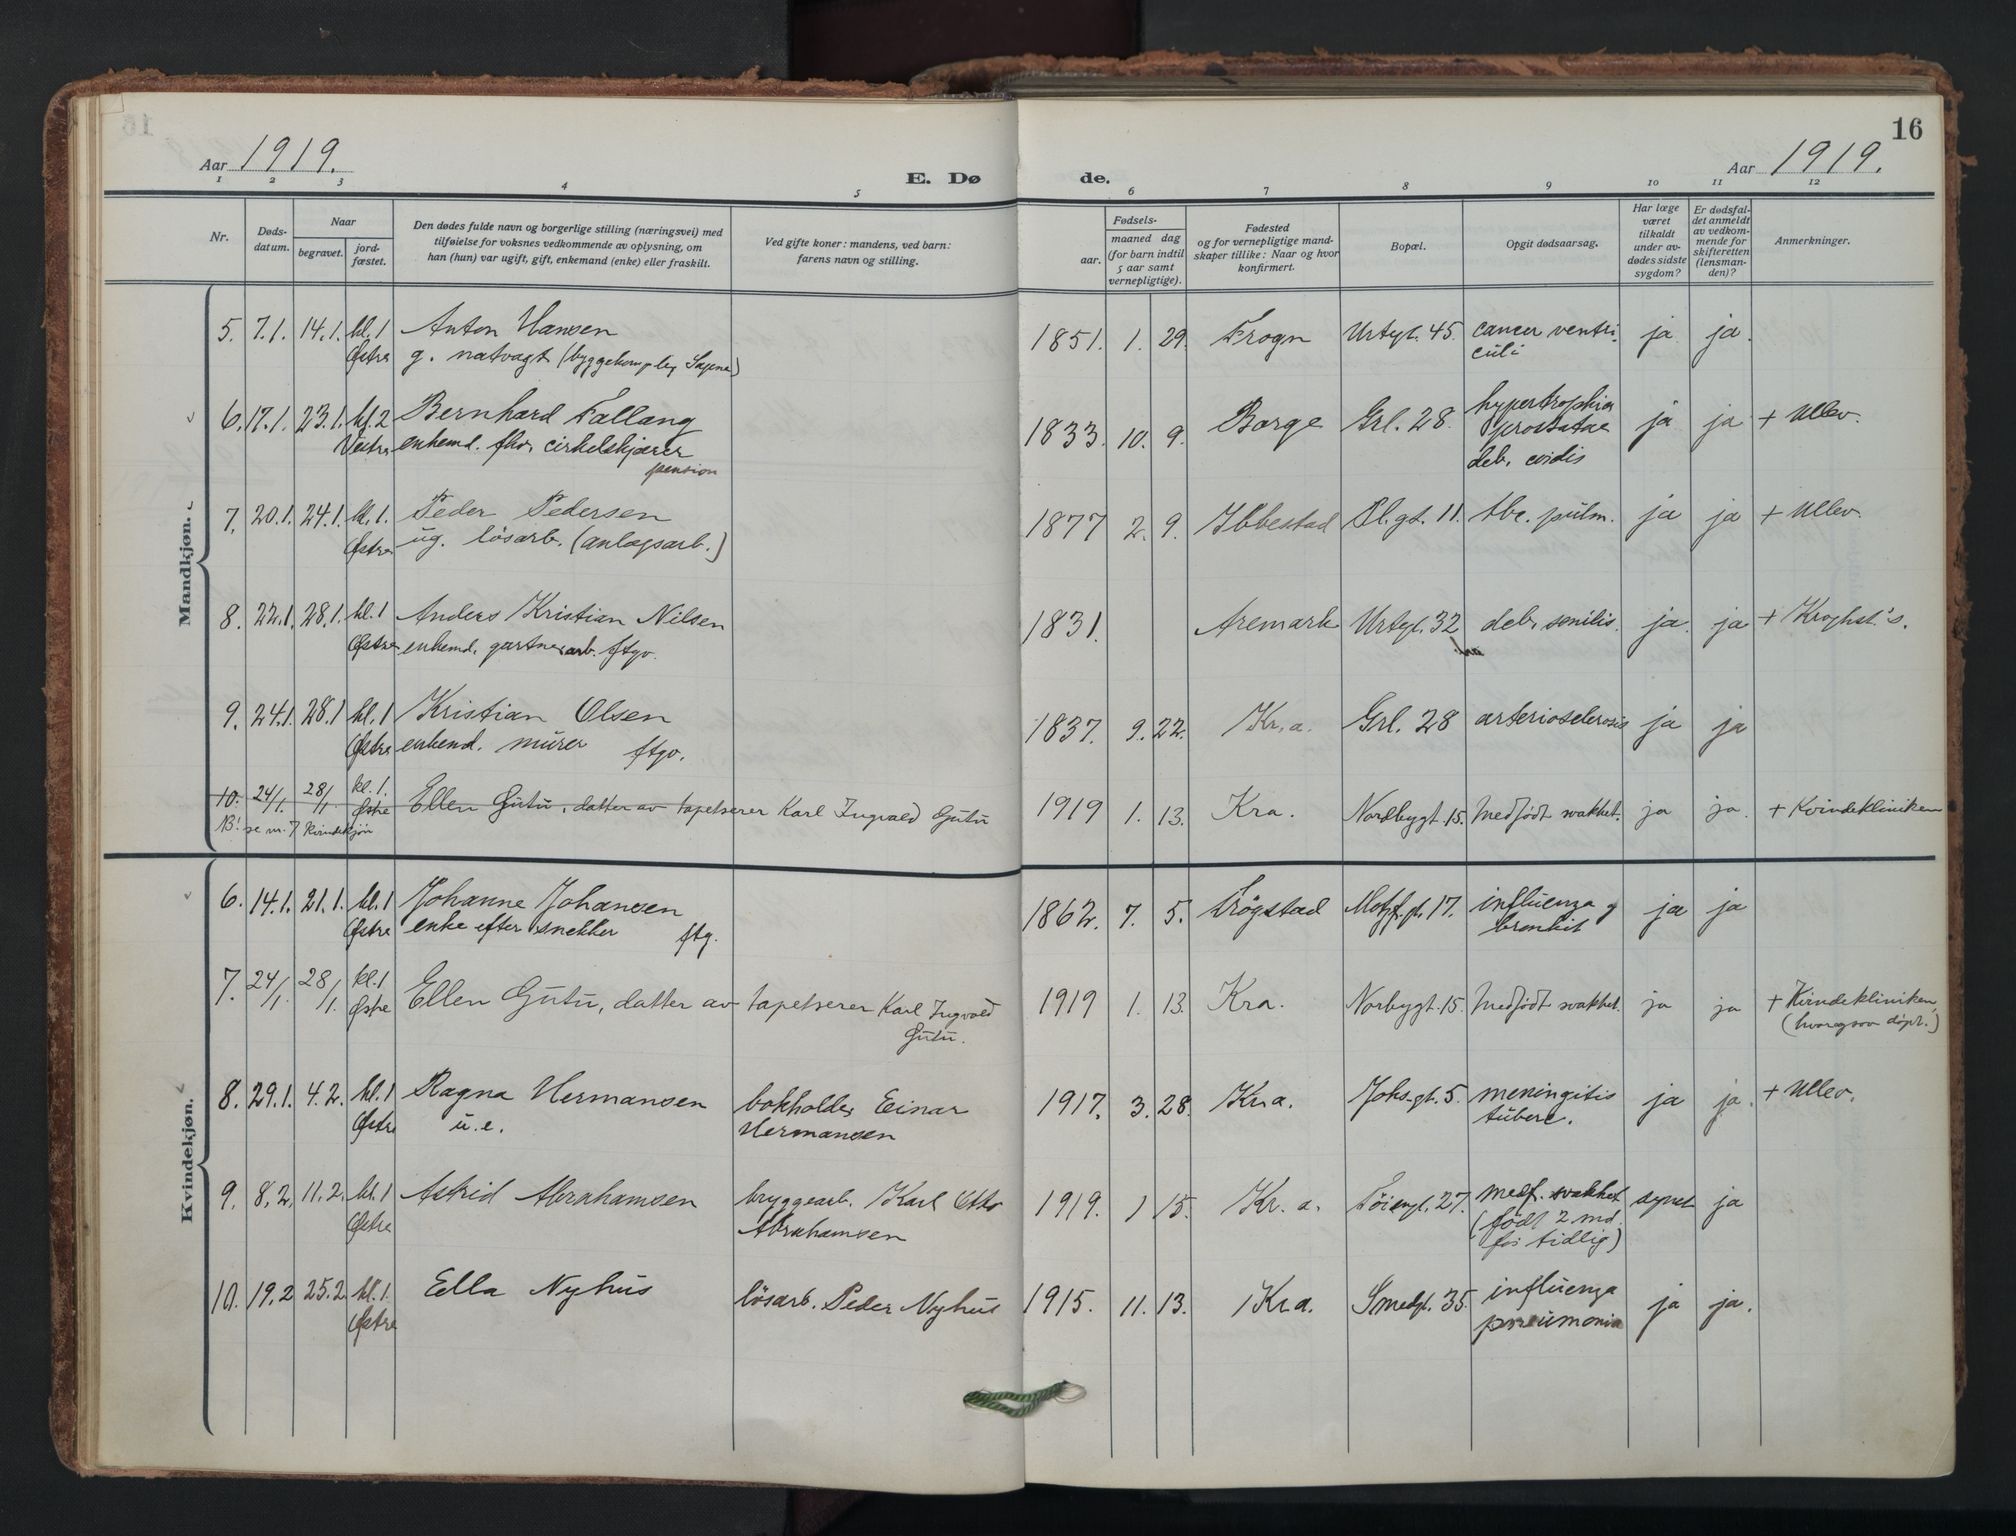 16
Aar 1919.
E. Dø de.
Aar 1919.
1 2 3 4 5 6 7 8 9 10 11 12
Nr.
Døds-
datum.
Naar
begravet.
jord-
fæstet.
Den dødes fulde navn og borgerlige stilling (næringsvei) med
tilføielse for voksnes vedkommende av oplysning, om
han (hun) var ugift, gift, enkemand (enke) eller fraskilt.
Ved gifte koner: mandens, ved barn:
farens navn og stilling.
Fødsels-
aar.
maaned dag
(for barn indtil
5 aar samt
vernepligtige).
Fødested
og for vernepligtige mand-
skaper tillike: Naar og hvor
konfirmert.
Bopæl.
Opgit dødsaarsag.
Har læge
været
tilkaldt
under av-
dødes sidste
sygdom?
Er dødsfal-
det anmeldt
av vedkom-
mende for
skifteretten
(lensman-
den)?
Anmerkninger.
Mandkjøn.
5. 7.1. 14.1. kl.1 Anton Hansen 1851. 1. 29. Frogn Urtegt. 45. cancer ventri-
Østre g. natvagt (byggekomplex Sagene) culi ja ja.
6. 17.1. 23.1. kl.2 Bernhard Fallang 1833. 10. 9. Borge Grl. 28. hypertrophia ja ja + Ullev.
Vestre enkemd. fhv. cirkelskjærer prostatae
pension deb. cordis
7. 20.1. 24.1. kl.1. Peder Pedersen 1877 2. 9. Ibbestad Pl.gt. 11. tbc. pulm. ja ja + Ullev.
Østre ug. løsarb. (anlægsarb.)
8. 22.1. 28.1. kl.1 Anders Kristian Nilsen 1831. Aremark Urtegt. 32 deb. senilis. ja. ja + Kroghst.'s.
Østre enkemd. gartnerarb. ftgv.
9. 24.1. 28.1 kl.1 Kristian Olsen 1837. 9. 22. Kr.a. Grl. 28 arteriosclerosis ja ja
Østre enkemd. murer ftgv.
10. 24/1. 28/1. kl.1. Østre Ellen Gutu, datter av tapetserer Karl Ingvald Gutu 1919 1. 13. Kra. Nordbygt. 15. Medfødt svakhet. ja ja. + Kvindekliniken
NB! se nr. 7 Kvindekjøn
Kvindekjøn.
6. 14.1. 21.1. kl.1 Johanne Johansen 1862. 7. 5. Trøgstad Motzf.gt. 17. influenza og ja ja
Østre enke efter snekker ftg. bronkit
7. 24/1. 28/1. kl.1 Østre Ellen Gutu, datter av tapetserer Karl Ingvald 1919 1. 13. Kra. Norbygt. 15. Medfødt svakhet. ja ja + Kvindekliniken,
Gutu. (hvor ogsaa døpt.)
8. 29.1. 4.2. kl.1 Ragna Hermansen bokholder Einar 1917. 3. 28. Kr.a. Johs.gt. 5. meningitis ja ja. + Ullev.
Østre u.e. Hermansen tuberc.
9. 8.2. 11.2. kl.1 Astrid Abrahamsen bryggearb. Karl Otto 1919. 1 15. Kr.a. Tøiengt. 27. medf. svakhet synet ja
Østre Abrahamsen (født 2 md.
for tidlig)
10. 19.2 25.2 kl.1. Ella Nyhus løsarb. Peder Nyhus 1915. 11. 13. Kr.a. Smedgt. 35. influenza ja ja.
Østre pneumonia